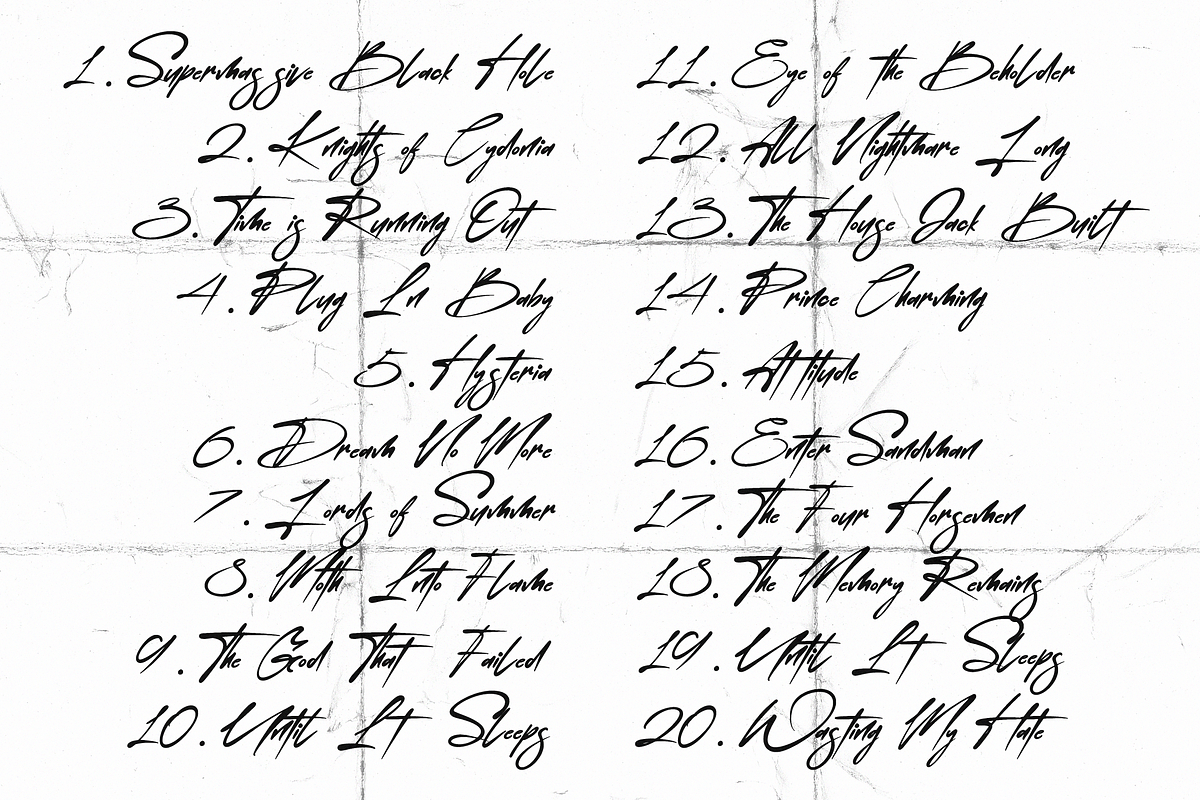 1. Supermassive Black Hole
2. Knights of Cydonia
3. Time is Running Out
4. Plug In Baby
5. Hysteria
6. Dream No More
7. Lords of Summer
8. Moth Into Flame
9. The God That Failed
10. Until It Sleeps
11. Eye of the Beholder
12. All Nightmare Long
13. The House Jack Built
14. Prince Charming
15. Attitude
16. Enter Sandman
17. The Four Horsemen
18. The Memory Remains
19. Until It Sleeps
20. Wasting My Hate